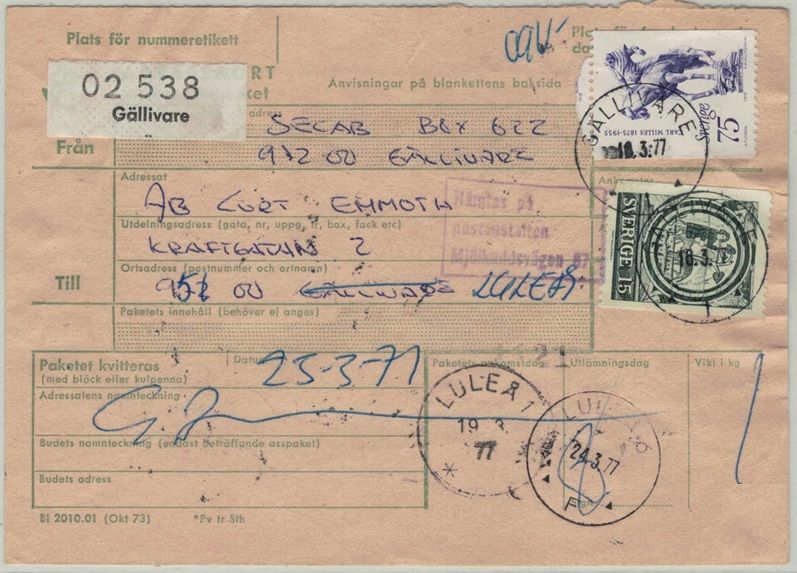 Plats för nummeretikett
Plats för
02 538
Gällivare
RT
ket
Anvisningar på blankettens baksida
Från
SECAB BOX 622
972 00 GÄLLIVARE
SVERIGE 75
CARL MILLES 1875-1955
GÄLLIVARE
18.3.77
Adressat
AB CURT EMMOTH
Utdelningsadress (gata, nr, uppg, tr, box, fack etc)
KRAFTGATAN 2
Hämtas på
postanstalten
Mjölkuddsvägen 87
Ankomstnr
Till
Ortsadress (postnummer och ortnamn)
951 00 GÄLLIVARE LULEÅ
SVERIGE 15
GÄLLIVARE
18.3.77
1
Paketets innehåll (behöver ej anges)
Paketet kvitteras
(med bläck eller kulpenna)
Datum
25-3-77
Paketets ankomstdag
Utlämningsdag
Vikt i kg
21
Adressatens namnteckning
LULEÅ 1
19.3.
77
*
LULEÅ 6
24.3.77
F
Sign
Budets namnteckning (endast beträffande asspaket)
Budets adress
BI 2010.01 (Okt 73) *Pv tr Sth